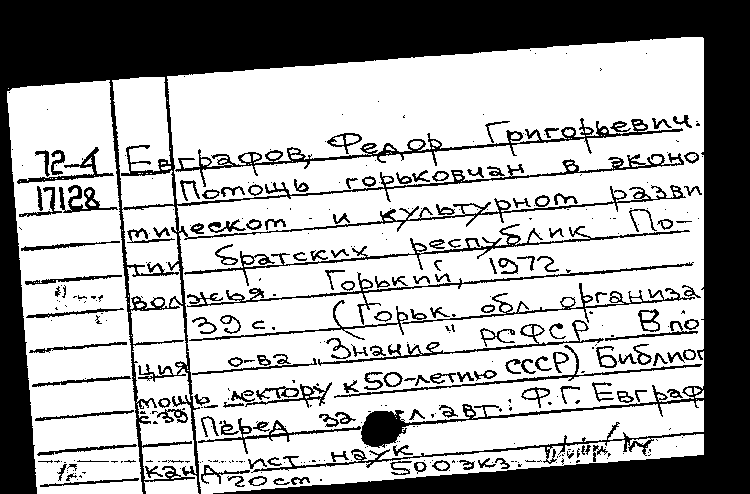 72-4 Евграфов, Федор Григорьевич.
17128 Помощь горьковчан в эконо
мическом и культурном разви
тии братских республик По-
волжья. Горький, 1972.
39 с. (Горьк. обл. организа
ция о-ва „Знание" РСФСР. В по
мощь лектору к 50-летию СССР) Библиог
с. 39
Перед загл. авт.: Ф.Г. Евграф
канд ист наук.
20 cm. 500 экз.